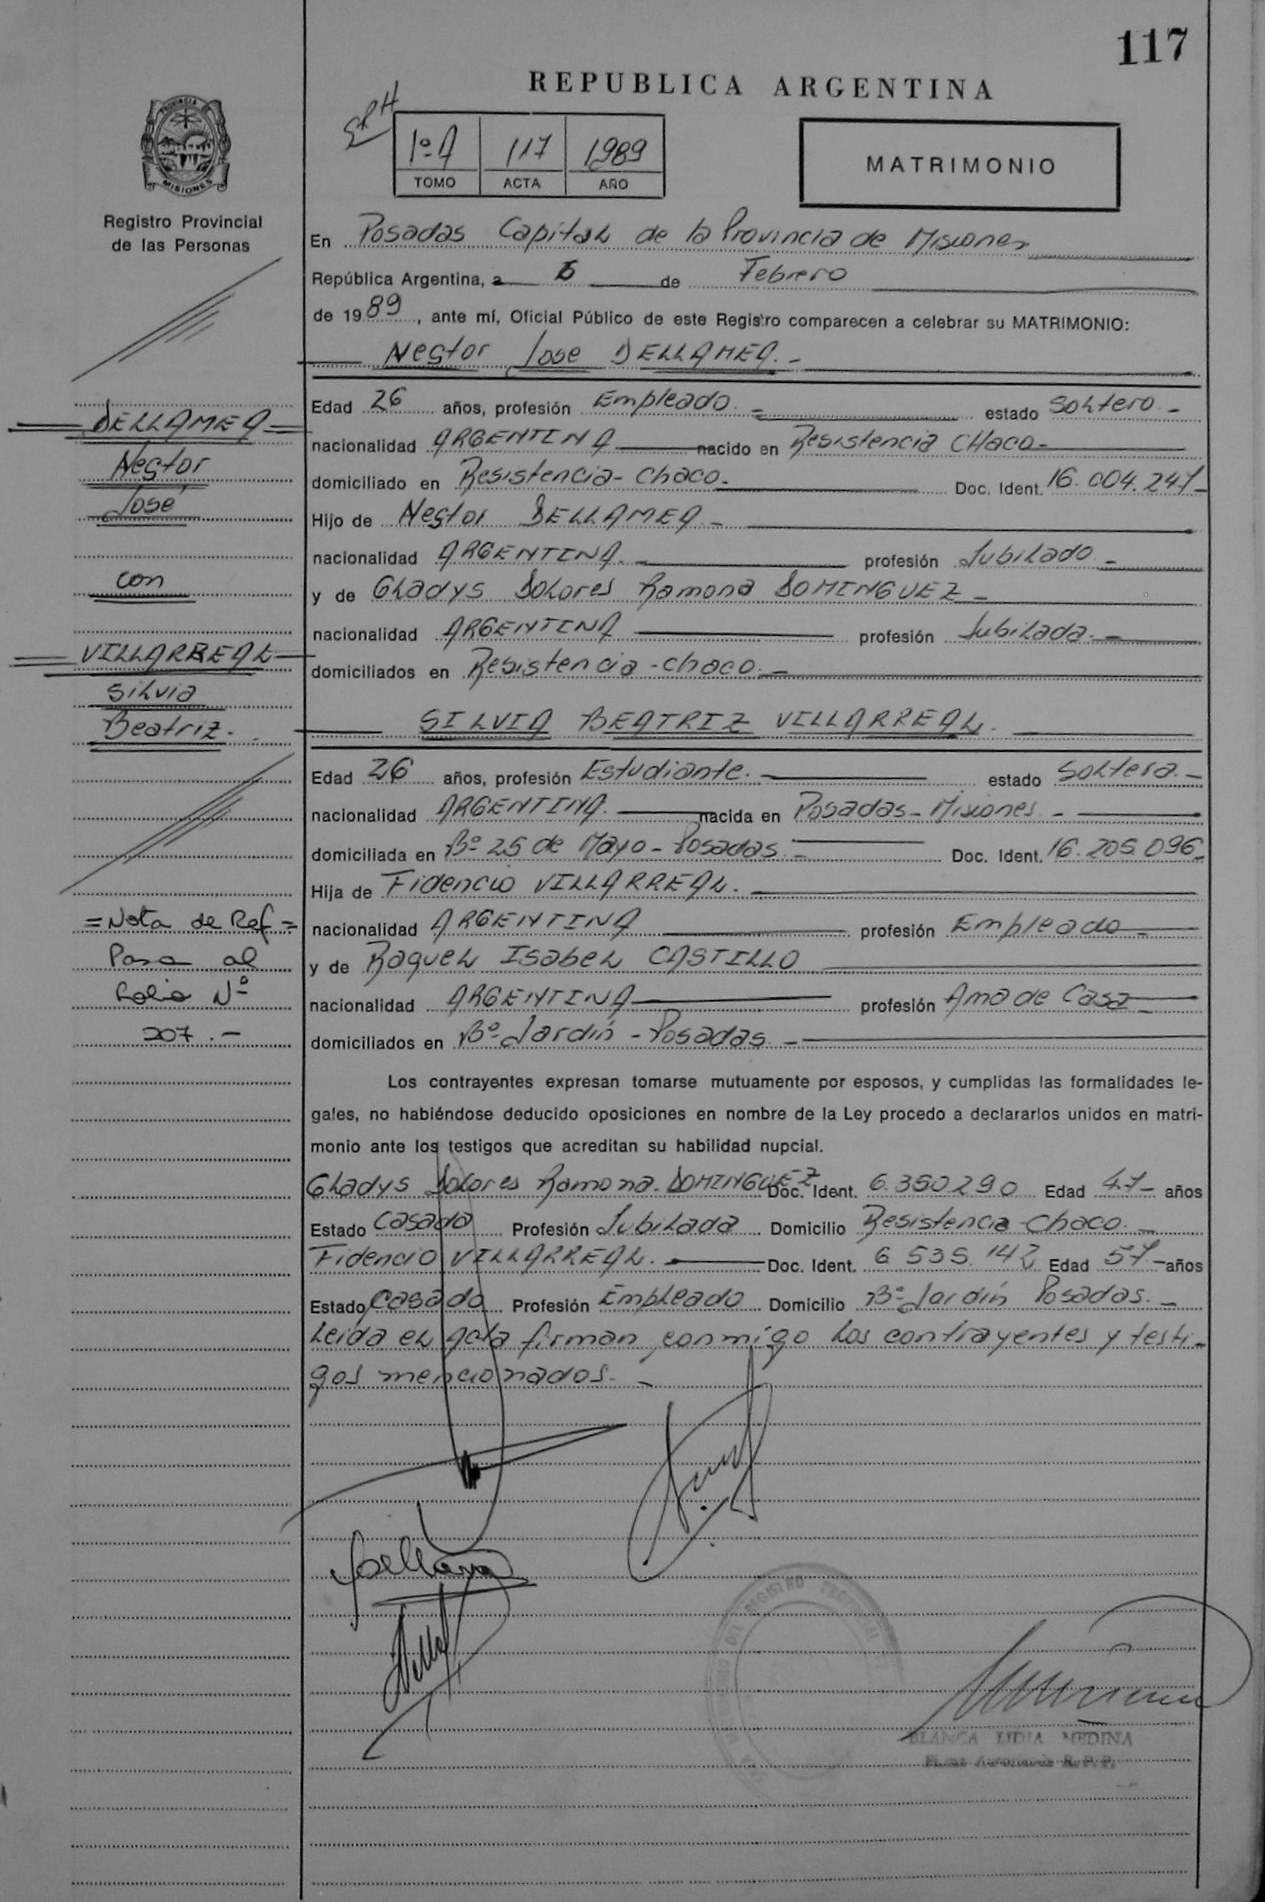 117
REPUBLICA ARGENTINA
1º A 117 1989
TOMO ACTA AÑO
MATRIMONIO
PROVINCIA DE
MISIONES
Registro Provincial
de las Personas
En Posadas Capital de la Provincia de Misiones
República Argentina, a 6 de Febrero
de 1989, ante mí, Oficial Público de este Registro comparecen a celebrar su MATRIMONIO:
Nestor Jose DELLAMEA.-
DELLAMEA
Nestor
José
con
VILLARREAL
Silvia
Beatriz.-
=Nota de Ref=
Pasa al
Folio Nº
207.-
Edad 26 años, profesión Empleado.= estado Soltero.-
nacionalidad ARGENTINA nacido en Resistencia CHaco-
domiciliado en Resistencia-Chaco- Doc. Ident. 16.004.247-
Hijo de Nestor DELLAMEA.-
nacionalidad ARGENTINA.- profesión Jubilado.-
y de Gladys Dolores Ramona DOMINGUEZ-
nacionalidad ARGENTINA profesión Jubilada.-
domiciliados en Resistencia-chaco.-
SILVIA BEATRIZ VILLARREAL.
Edad 26 años, profesión Estudiante.- estado Soltera.-
nacionalidad ARGENTINA. nacida en Posadas-Misiones.-
domiciliada en Bº 25 de Mayo-Posadas.- Doc. Ident. 16.205.096-
Hija de Fidencio VILLARREAL.
nacionalidad ARGENTINA profesión Empleado-
y de Raquel Isabel CASTILLO
nacionalidad ARGENTINA profesión Ama de Casa-
domiciliados en Bº Jardín-Posadas.-
Los contrayentes expresan tomarse mutuamente por esposos, y cumplidas las formalidades le-
gales, no habiéndose deducido oposiciones en nombre de la Ley procedo a declararlos unidos en matri-
monio ante los testigos que acreditan su habilidad nupcial.
Gladys Dolores Ramona.DOMINGUEZ Doc. Ident. 6.350290 Edad 47- años
Estado Casada Profesión Jubilada Domicilio Resistencia-Chaco.-
Fidencio VILLARREAL. Doc. Ident. 6 535.142 Edad 57-años
Estado Casado Profesión Empleado Domicilio Bº Jardín Posadas.-
Leida el Acta firman conmigo los contrayentes y testi-
gos mencionados.-
DEL REGISTRO PROVINCIAL DE
BLANCA LIDIA MEDINA
Firma Autorizada R.P.P.